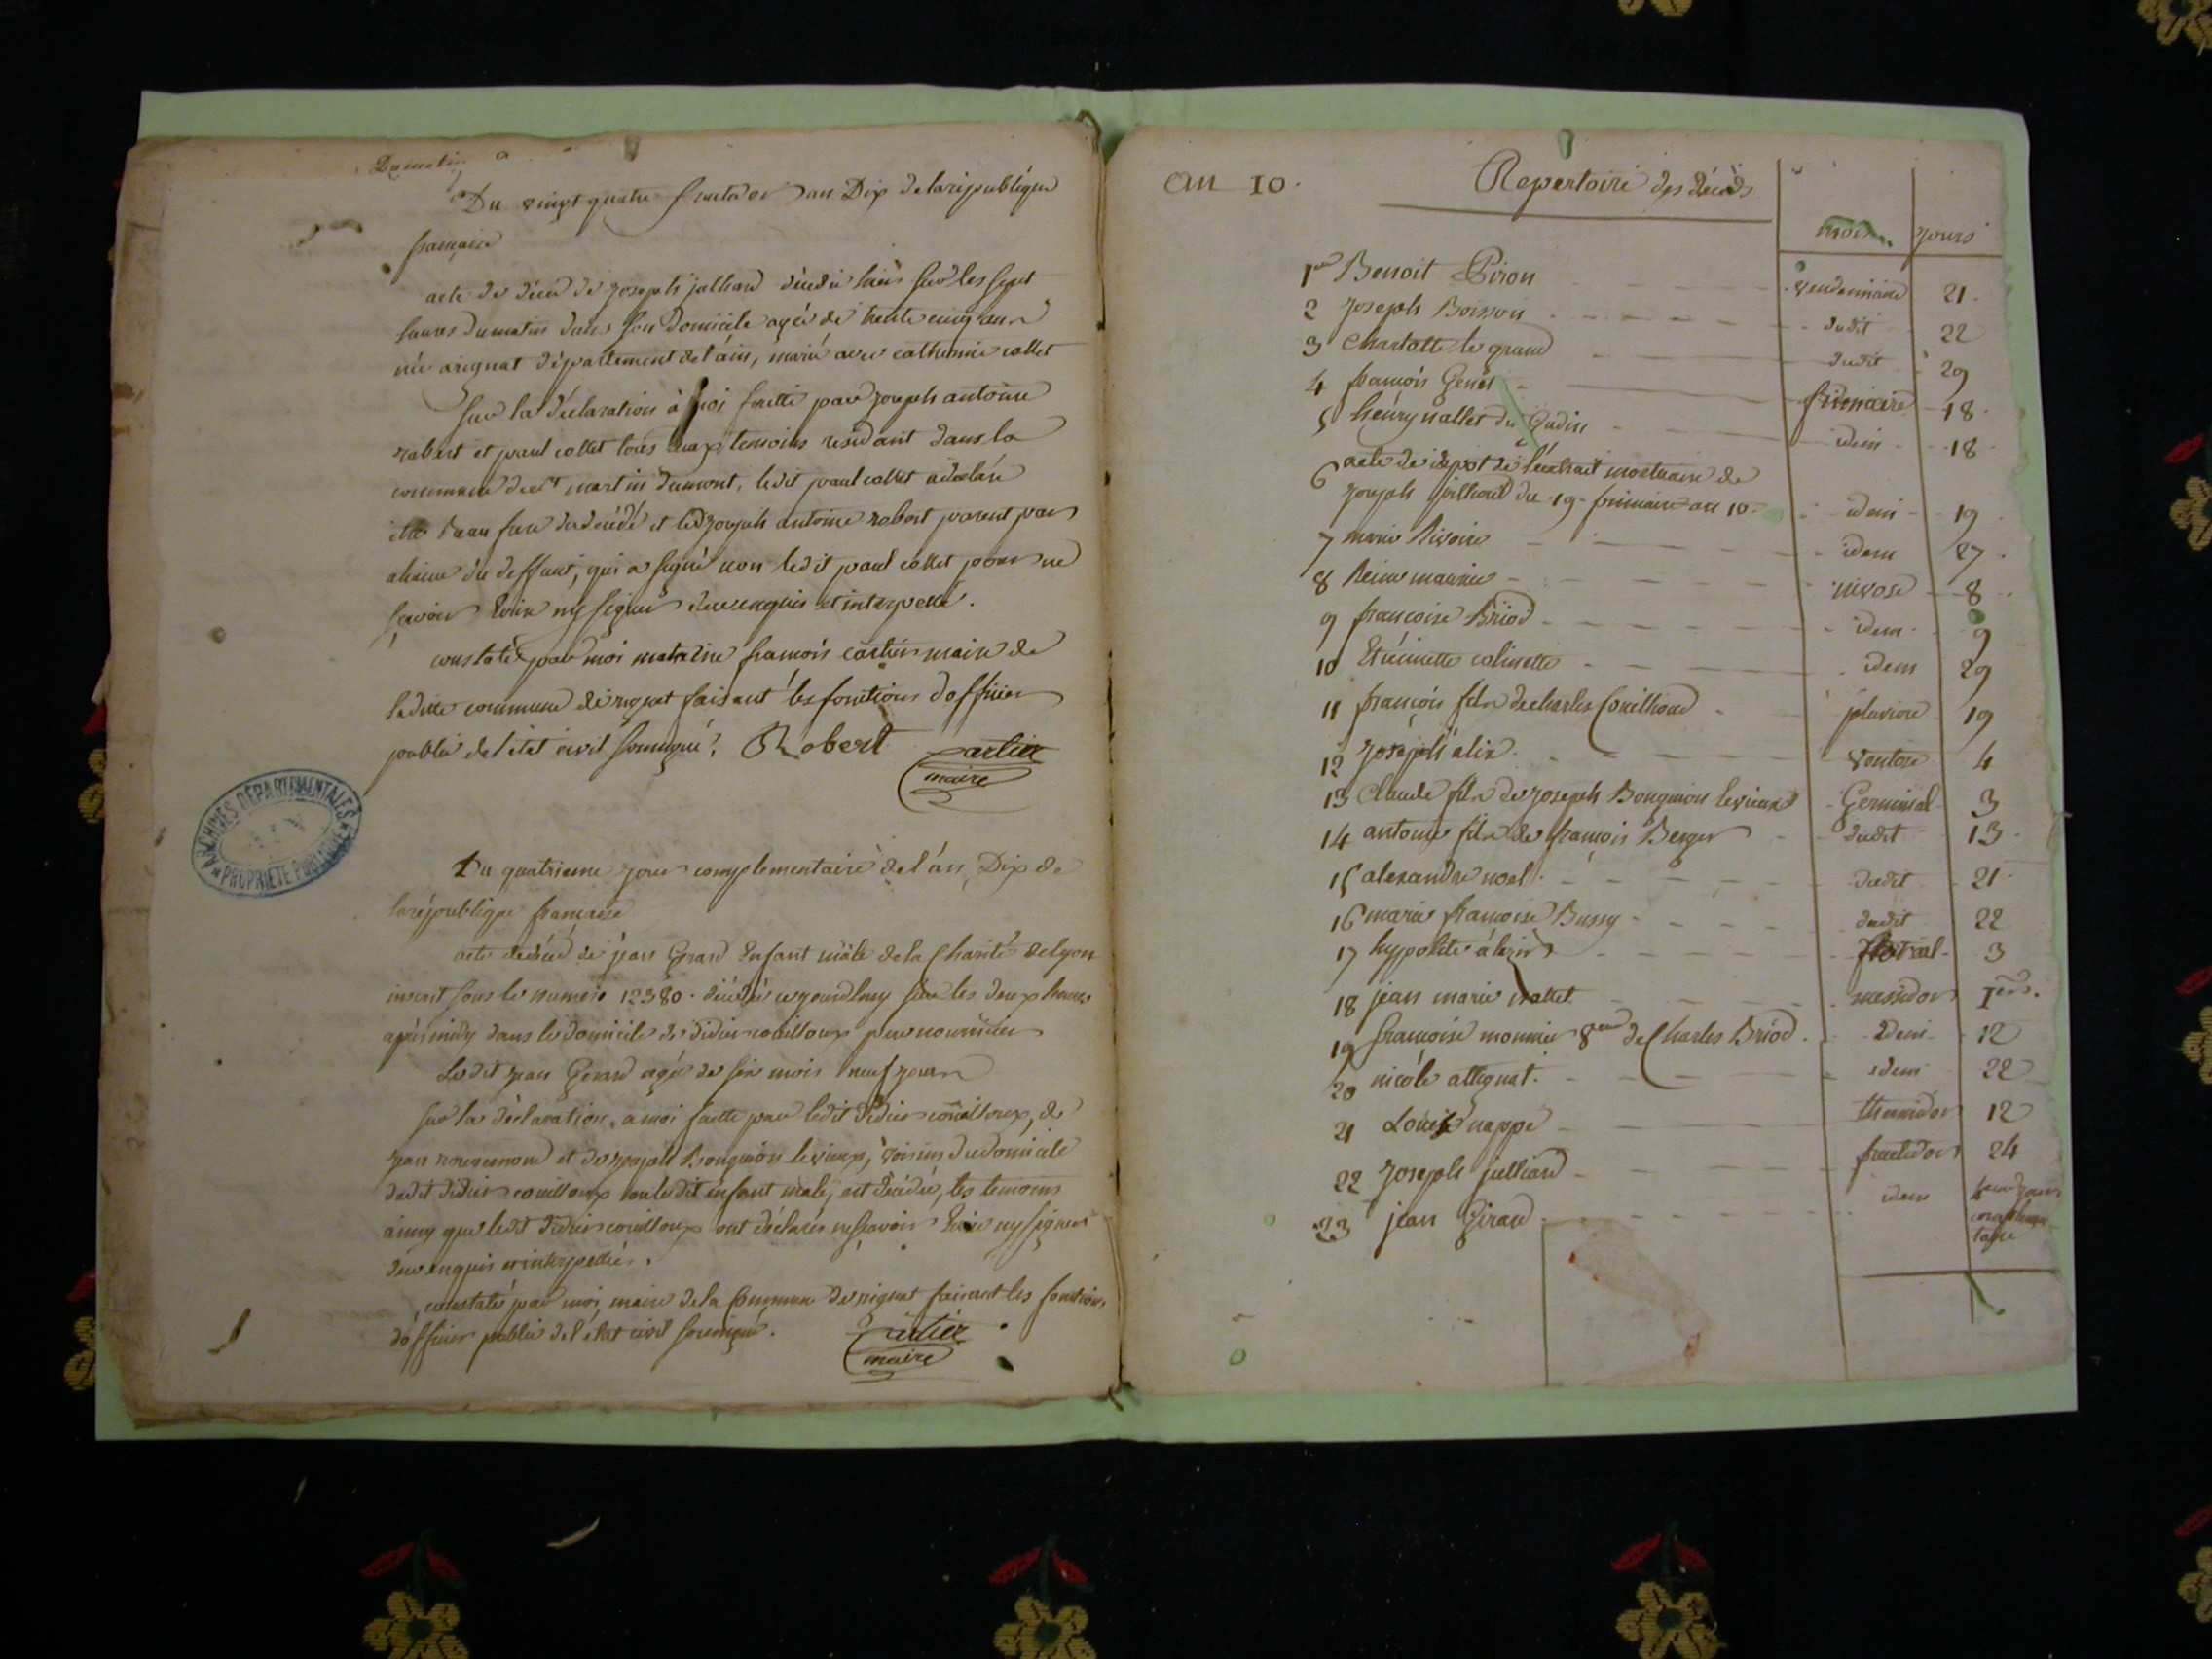 Du vingt quatre fructidor an Dix de la republique
française
acte de décés de joseph julliard décédé hier sur les sept
heures du matin dans son domicile agée de trente cinq ans
née arignat département de l'ain, marié avec catherine collet
sur la déclaration à moi faitte par joseph antoine
robert et paul collet tous deux temoins residant dans la
commune de st martin dumont, ledit paul collet a déclaré
etre beau frere du décédé et led joseph antoine robert parent par
aliance du deffunt, qui a signé non ledit paul collet pour ne
savoir Ecrire ny signer de ce enquis et interpellé.
constaté par moi françois cartier maire de
laditte commune de rignat faisant les fonctions d'officier
public de l'etat civil soussigné. Robert Cartier
maire
ARCHIVES DÉPARTEMENTALES
PROPRIETE PUBLIQUE
Du quatrieme jour complementaire de l'an Dix de
la république française
acte de décéd de jean Girard Enfant mâle de la Charité de Lyon
inscrit sous le numero 12380. décédé ce jourdhuy sur les deux heures
après midy dans le domicile de didier couilloux
Ledit jean Girard agé de six mois neuf jours
sur la déclaration a moi faitte par ledit didier couilloux, de
jean et de joseph Bouquion levieux, voisins du domicile
dudit didier couilloux ou ledit enfant male, est décédé, les temoins
ainsy que ledit didier couilloux ont déclarés ne savoir Ecrire ny signer
de ce enquis et interpellés.
constaté par moi maire de la Commune de rignat faisant les fonctions
d'officier public de l'état civil soussigné. Cartier
maire
an 10.
Repertoire des décéds
mois jours
1er Benoit Piron vendemiaire 21
2 joseph Boisson dudit 22
3 Charlotte le grand dudit 29
4 françois Genet frimaire 18
5 henry nallet du Gudin idem 18
6 acte de depot de l'extrait mortuaire de
joseph du 19 frimaire an 10 idem 19
7 marie Rivoire idem 27
8 Reine maurice nivose 8
9 francoise Briod idem 9
10 Etiennette colinette idem 29
11 françois fils de charles Couilloud pluviose 19
12 joseph alix ventose 4
13 Claude fils de joseph Bouquion levieux Germinal 3
14 antoine fils de françois Berger dudit 13
15 alexandre noel dudit 21
16 marie françoise Bussy dudit 22
17 hypolite floreal 3
18 jean marie nallet messidor 1er.
19 francoise monnier de Charles Briod idem 12
20 nicole attignat idem 22
21 Louise nappe thermidor 12
22 joseph julliard fructidor 24
23 jean Girard idem 4eme jour
complemen
taire